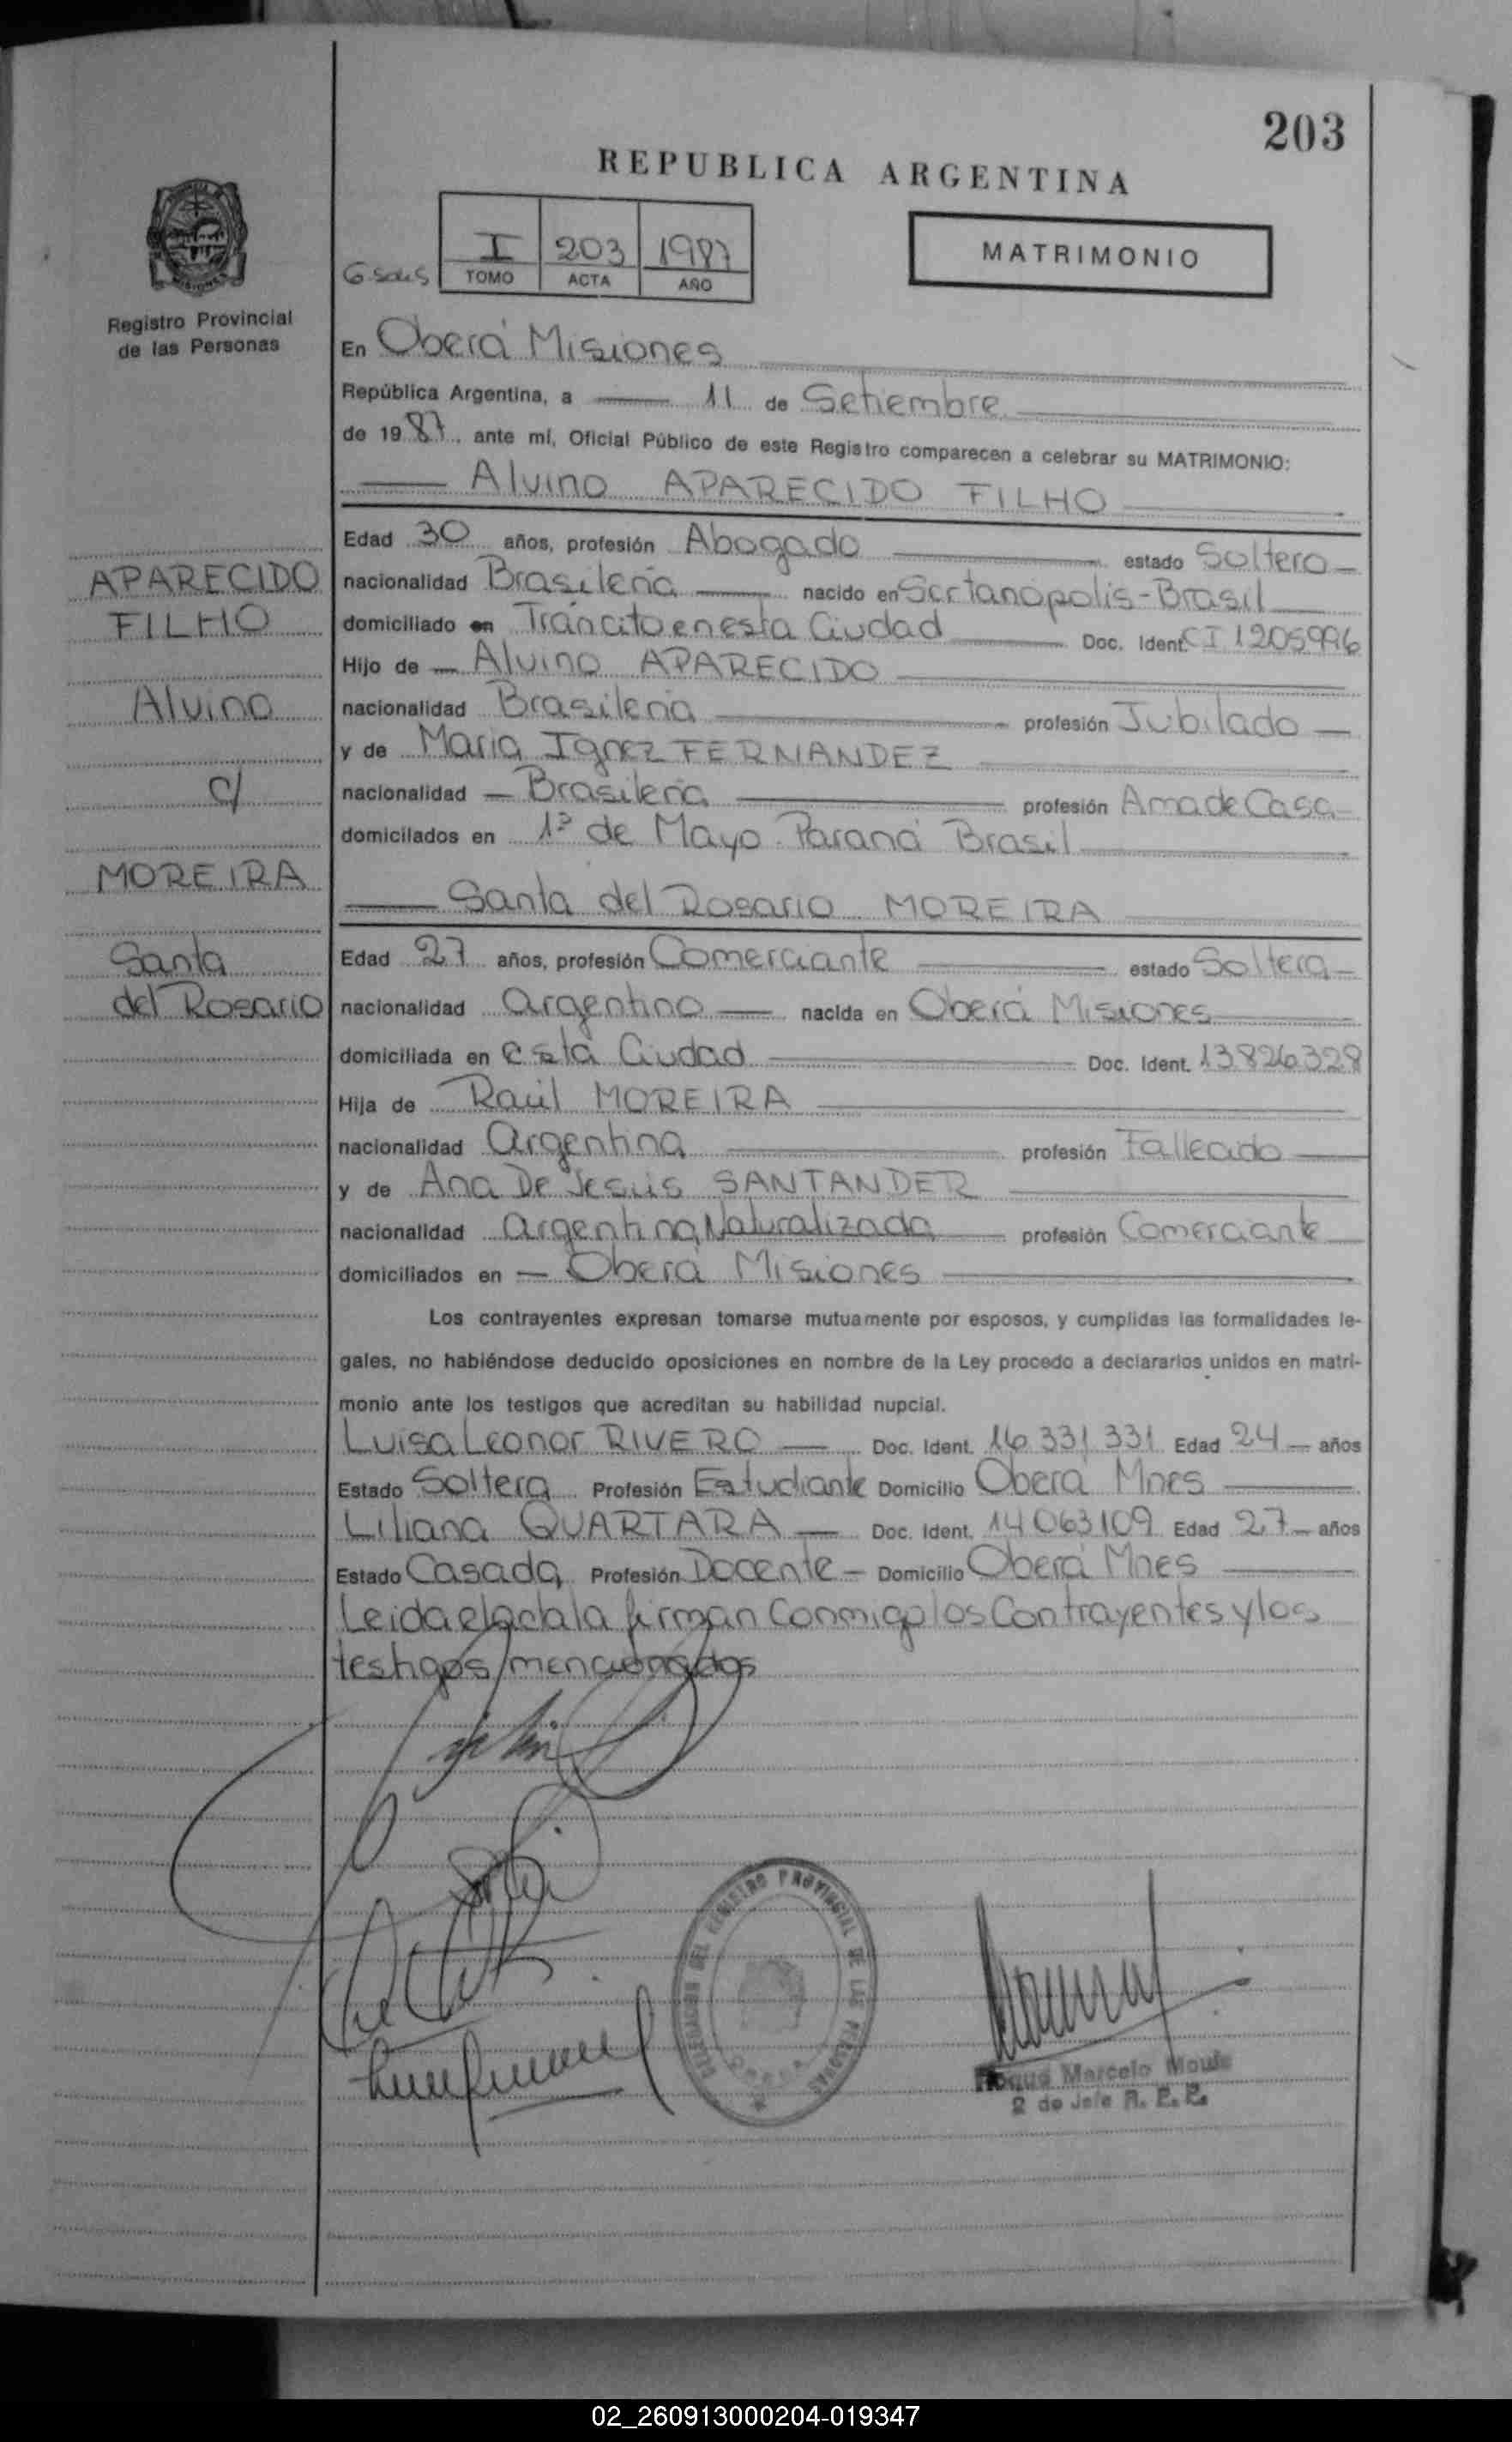 203
REPUBLICA ARGENTINA
I 203 1987
MATRIMONIO
TOMO ACTA AÑO
Registro Provincial
de las Personas
En Oberá Misiones
República Argentina, a 11 de Setiembre
de 1987, ante mí, Oficial Público de este Registro comparecen a celebrar su MATRIMONIO:
Alvino APARECIDO FILHO
Edad 30 años, profesión Abogado estado Soltero
APARECIDO
FILHO
Alvino
c/
MOREIRA
Santa
del Rosario
nacionalidad Brasileña nacido en Sertanopolis - Brasil
domiciliado en Tráncito en esta Ciudad Doc. Ident. CI 1205996
Hijo de Alvino APARECIDO
nacionalidad Brasileña profesión Jubilado
y de Maria Ignez FERNANDEZ
nacionalidad Brasileña profesión Ama de Casa
domicilados en 1º de Mayo Paraná Brasil
Santa del Rosario MOREIRA
Edad 27 años, profesión Comerciante estado Soltera
nacionalidad Argentina nacida en Oberá Misiones
domiciliada en esta Ciudad Doc. Ident. 13826328
Hija de Raúl MOREIRA
nacionalidad Argentina profesión Fallecido
y de Ana De Jesús SANTANDER
nacionalidad Argentina Naturalizada profesión Comerciante
domiciliados en Oberá Misiones
Los contrayentes expresan tomarse mutuamente por esposos, y cumplidas las formalidades le-
gales, no habiéndose deducido oposiciones en nombre de la Ley procedo a declararlos unidos en matri-
monio ante los testigos que acreditan su habilidad nupcial.
Luisa Leonor RIVERO Doc. Ident. 16 331 331 Edad 24 años
Estado Soltera Profesión Estudiante Domicilio Oberá Mnes
Liliana QUARTARA Doc. Ident. 14063109 Edad 27 años
Estado Casada Profesión Docente Domicilio Oberá Mnes
Leida el acta la firman Conmigo los Contrayentes y los
testigos mencionados
DELEGACION DEL REGISTRO PROVINCIAL DE LAS PERSONAS
Roque Marcelo
2 do Jefe R. P. P.
02_260913000204-019347